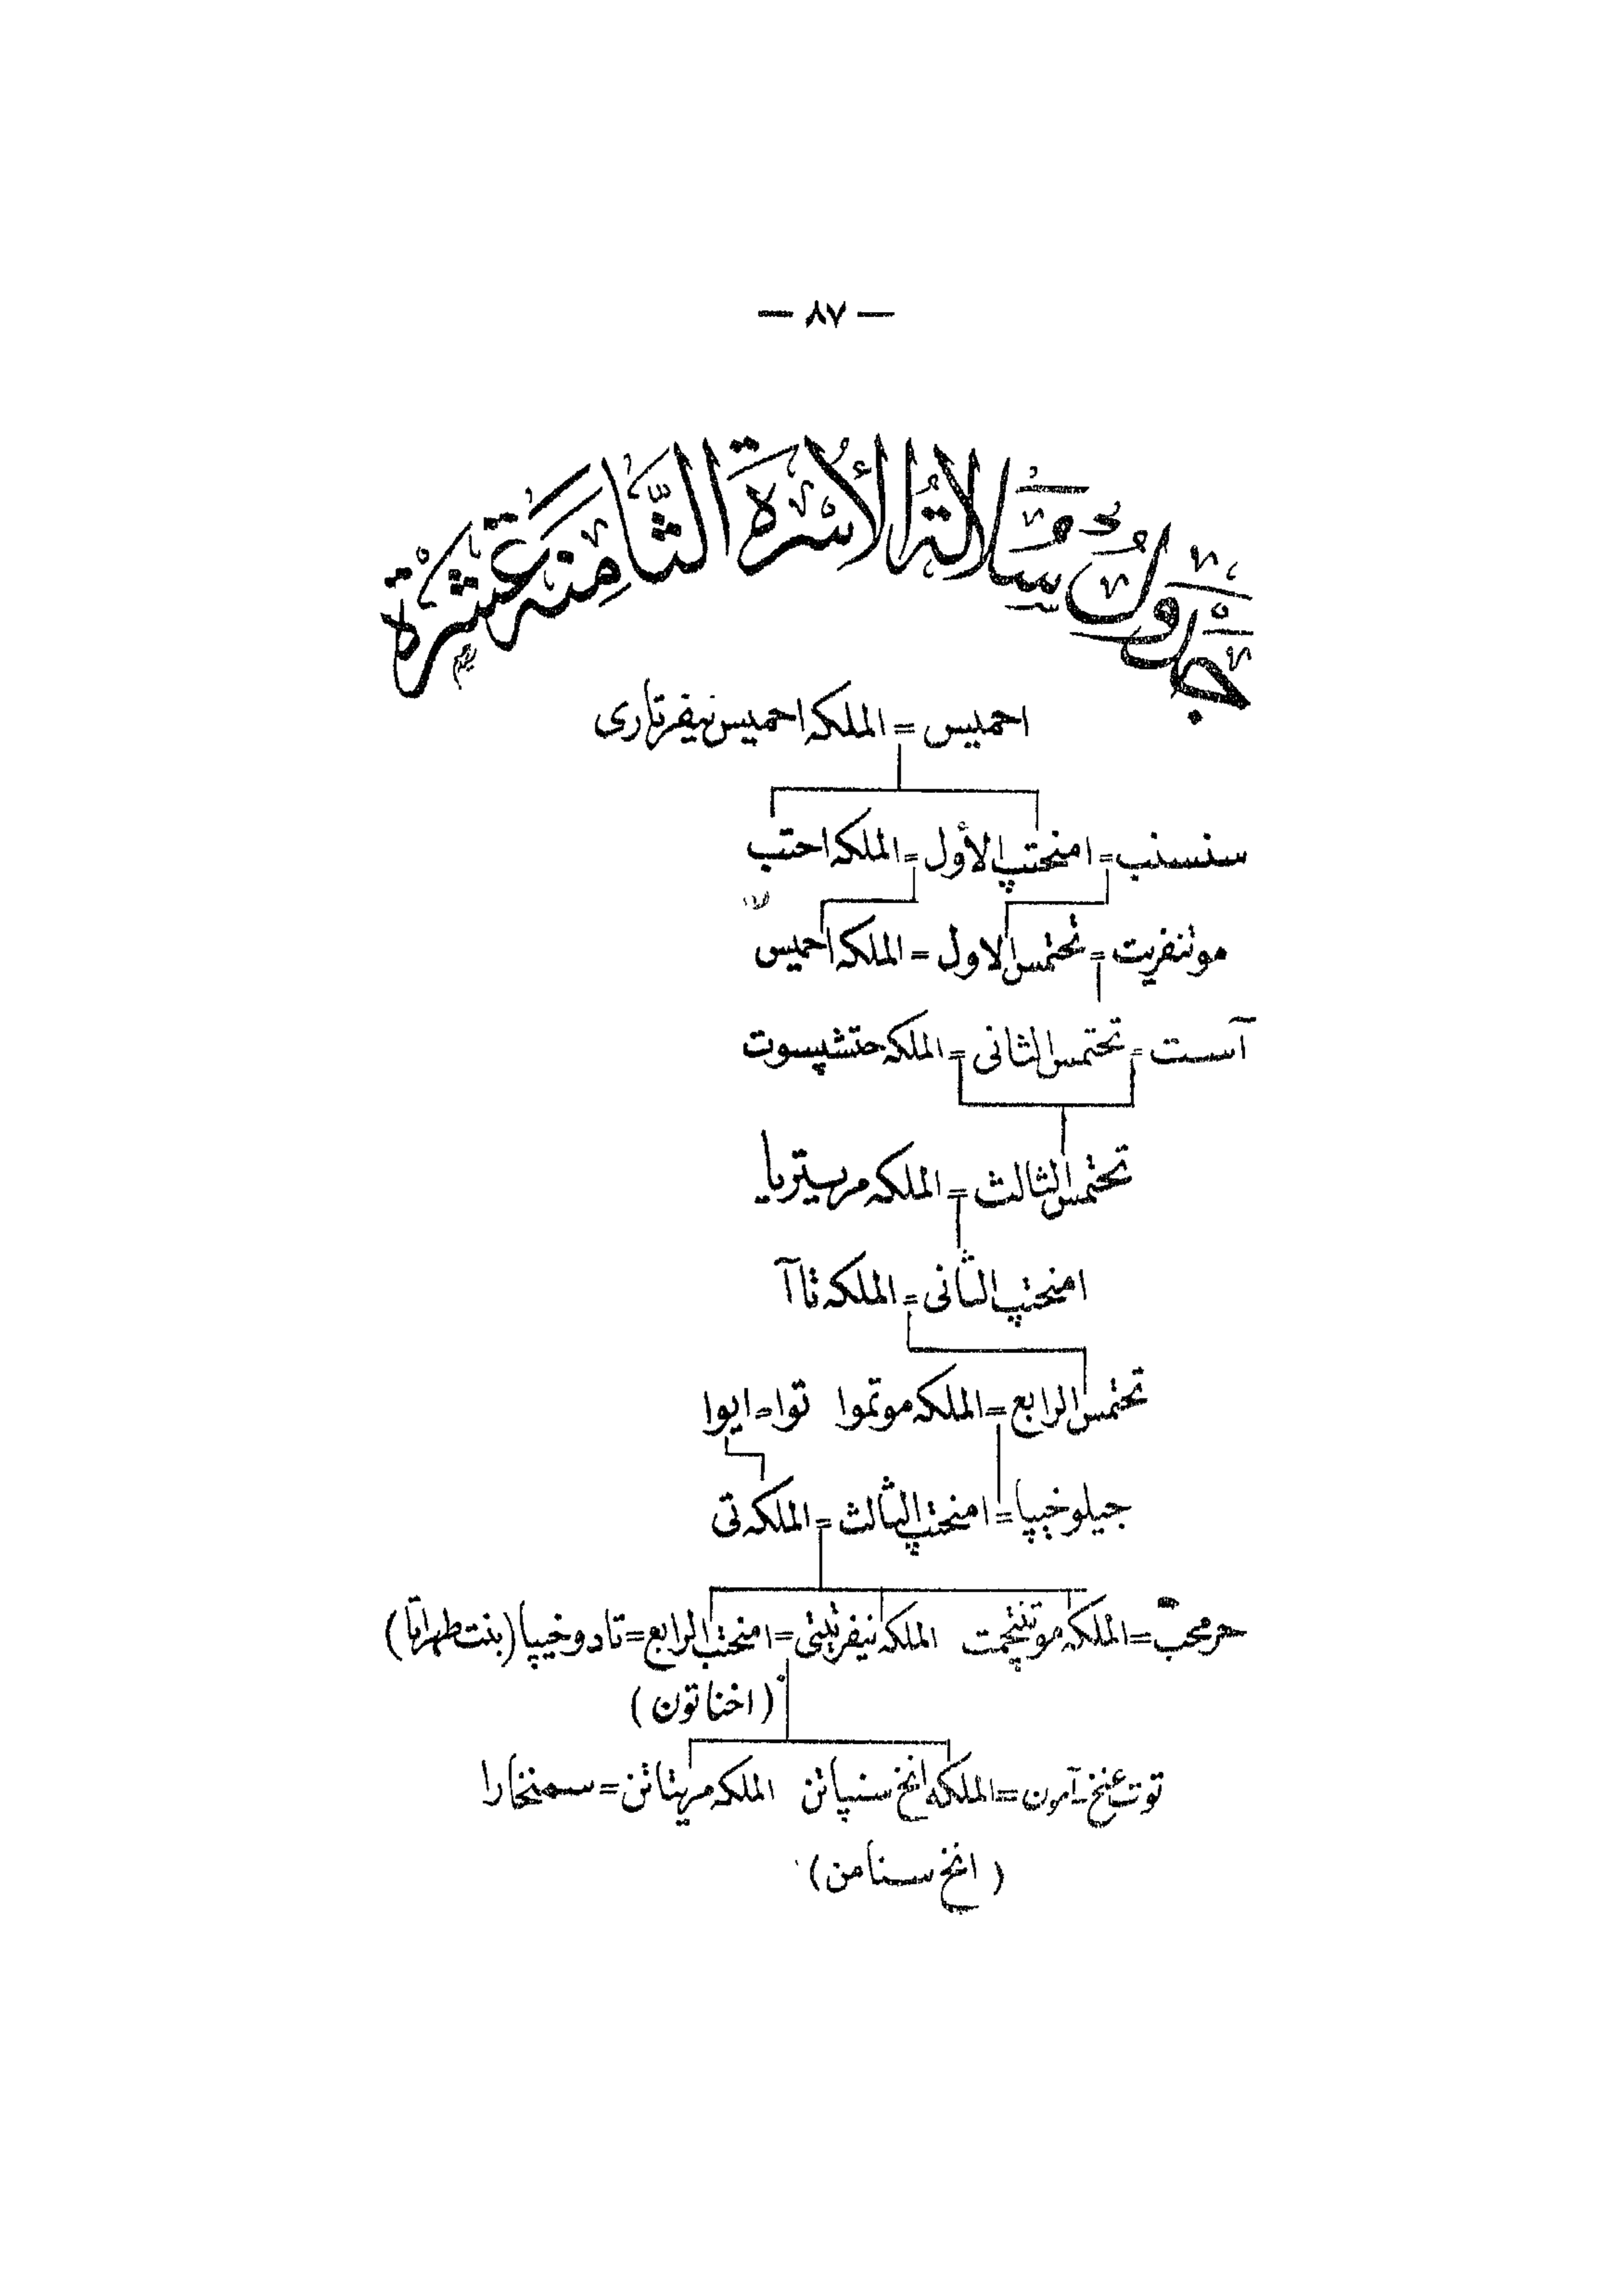 — ٨٧ —
جدول سلالة الأسرة الثامنة عشرة
احميس = الملكه احميس نيفرتاري
سنسنب = امنحتپ الأول = الملكه احتب
موتنفريت = تحتمس الاول = الملكه احميس
آست = تحتمس الثانى = الملكه حتشپسوت
تحتمس الثالث = الملكه مريتريا
امنحتپ الثانى = الملكه تاآ
تحتمس الرابع = الملكه موتموا توا = ايوا
جيلوخيپا = امنحتپ الثالث = الملكه تى
حرمحب = الملكه موتنچمت الملكه نيفرتيتى = امنحتپ الرابع = تادوخيپا (بنت طهراتا)
(اخناتون)
توت عنخ - آمون = الملكه انخ سنپاتن الملكه مريتاتن = سمنخارا
(انخ سنامن)